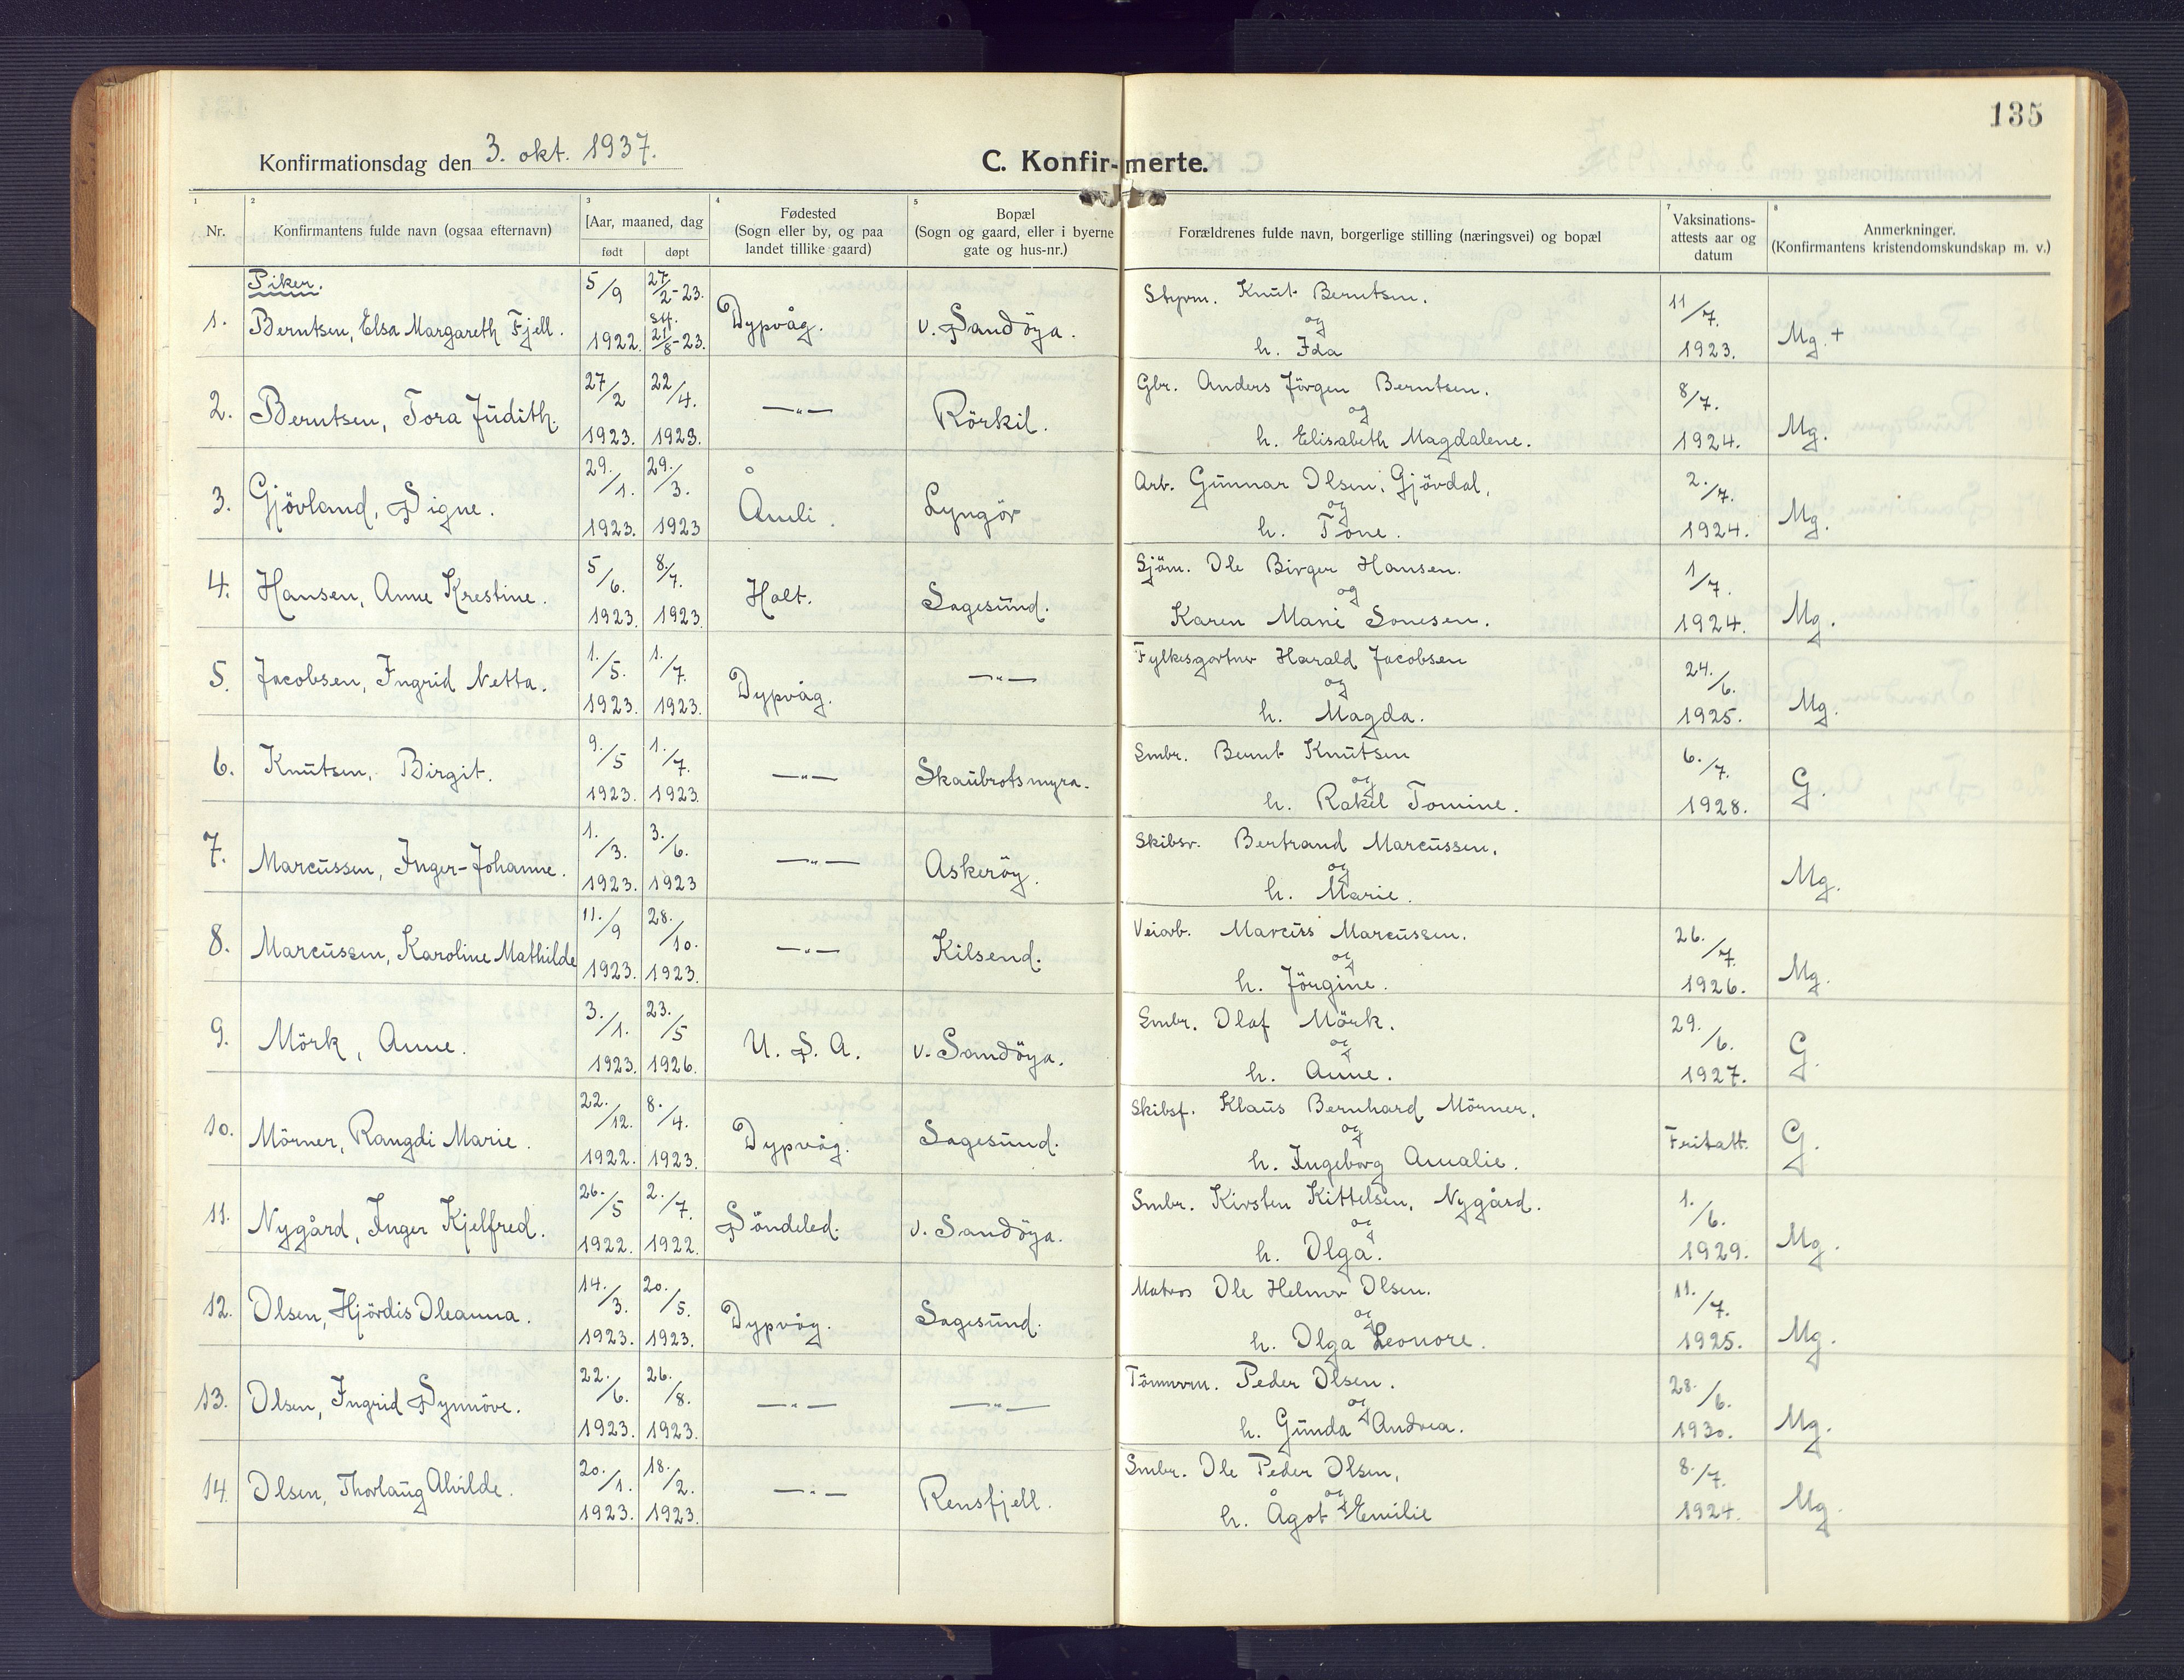 135
Konfirmationsdag den 3. okt. 1937.
C. Konfir-merte.
1 2 3 4 5 7 8
Nr. Konfirmantens fulde navn (ogsaa efternavn) [Aar, maaned, dag født døpt Fødested (Sogn eller by, og paa landet tillike gaard) Bopæl (Sogn og gaard, eller i byerne gate og hus-nr.) Forældrenes fulde navn, borgerlige stilling (næringsvei) og bopæl Vaksinations-attests aar og datum Anmerkninger. (Konfirmantens kristendomskundskap m. v.)
Piker.
1. Berntsen, Elsa Margareth Fjell. 5/9 1922. 27/2-23. st. 21/8-23. Dypvåg. v. Sandöya. Styrm. Knut Berntsen. og h. Ida 11/7. 1923. Mg. +
2. Berntsen, Tora Judith. 27/2 1923. 22/4. 1923. —"— Rörkil. Gbr. Anders Jörgen Berntsen. og h. Elisabeth Magdalene. 8/7. 1924. Mg.
3. Gjövland, Signe. 29./1. 1923. 29./3. 1923 Åmli. Lyngör Arb. Gunnar Olsen, Gjövdal, og h. Tone. 2./7. 1924. Mg.
4. Hansen, Anne Krestine. 5/6. 1923. 8./7. 1923. Holt. Sagesund. Sjöm. Ole Birger Hansen. og Karen Marie Sonesen. 1/7. 1924. Mg.
5. Jacobsen, Ingrid Netta. 1./5. 1923. 1./7. 1923. Dypvåg. —"— Fylkesgartner Harald Jacobsen og h. Magda. 24./6. 1925. Mg.
6. Knutsen, Birgit. 9./5 1923. 1./7. 1923. —"— Skaubrotsmyra. Smbr. Bernt Knutsen og h. Rakel Tomine. 6./7. 1928. G.
7. Marcussen, Inger-Johanne. 1./3. 1923. 3./6. 1923 —"— Askeröy. Skibsr. Bertrand Marcussen, og h. Marie. Mg.
8. Marcussen, Karoline Mathilde 11./9 1923. 28./10. 1923. —"— Kilsend. Veiarb. Marcus Marcussen. og h. Jörgine. 26./7. 1926. Mg.
9. Mörk, Anne. 3./1. 1923. 23./5 1926. U. S. A. v. Sandöya. Smbr. Olaf Mörk. og h. Anne. 29./6. 1927. G.
10. Mörner, Rangdi Marie. 22./12. 1922. 8./4. 1923. Dypvåg. Sagesund. Skibsf. Klaus Bernhard Mörner, og h. Ingeborg Amalie. Fritatt. G.
11. Nygård, Inger Kjelfred. 26./5 1922. 2./7. 1922. Söndeled. v. Sandöya. Smbr. Kirsten Kittelsen, Nygård. og h. Olga. 1./6. 1929. Mg.
12. Olsen, Hjördis Oleanna. 14./3. 1923. 20./5. 1923. Dypvåg. Sagesund. Matros Ole Helmer Olsen. og h. Olga Leonore. 11./7. 1925. Mg.
13. Olsen, Ingrid Synnöve. 22./6. 1923. 26./8. 1923. —"— —"— Tömmerm. Peder Olsen. og h. Gunda Andrea. 28./6. 1930. Mg.
14. Olsen, Thorlaug Alvilde. 20./1. 1923. 18./2. 1923. —"— Rensfjell. Smbr. Ole Peder Olsen, og h. Ågot Emilie 8./7. 1924. Mg.